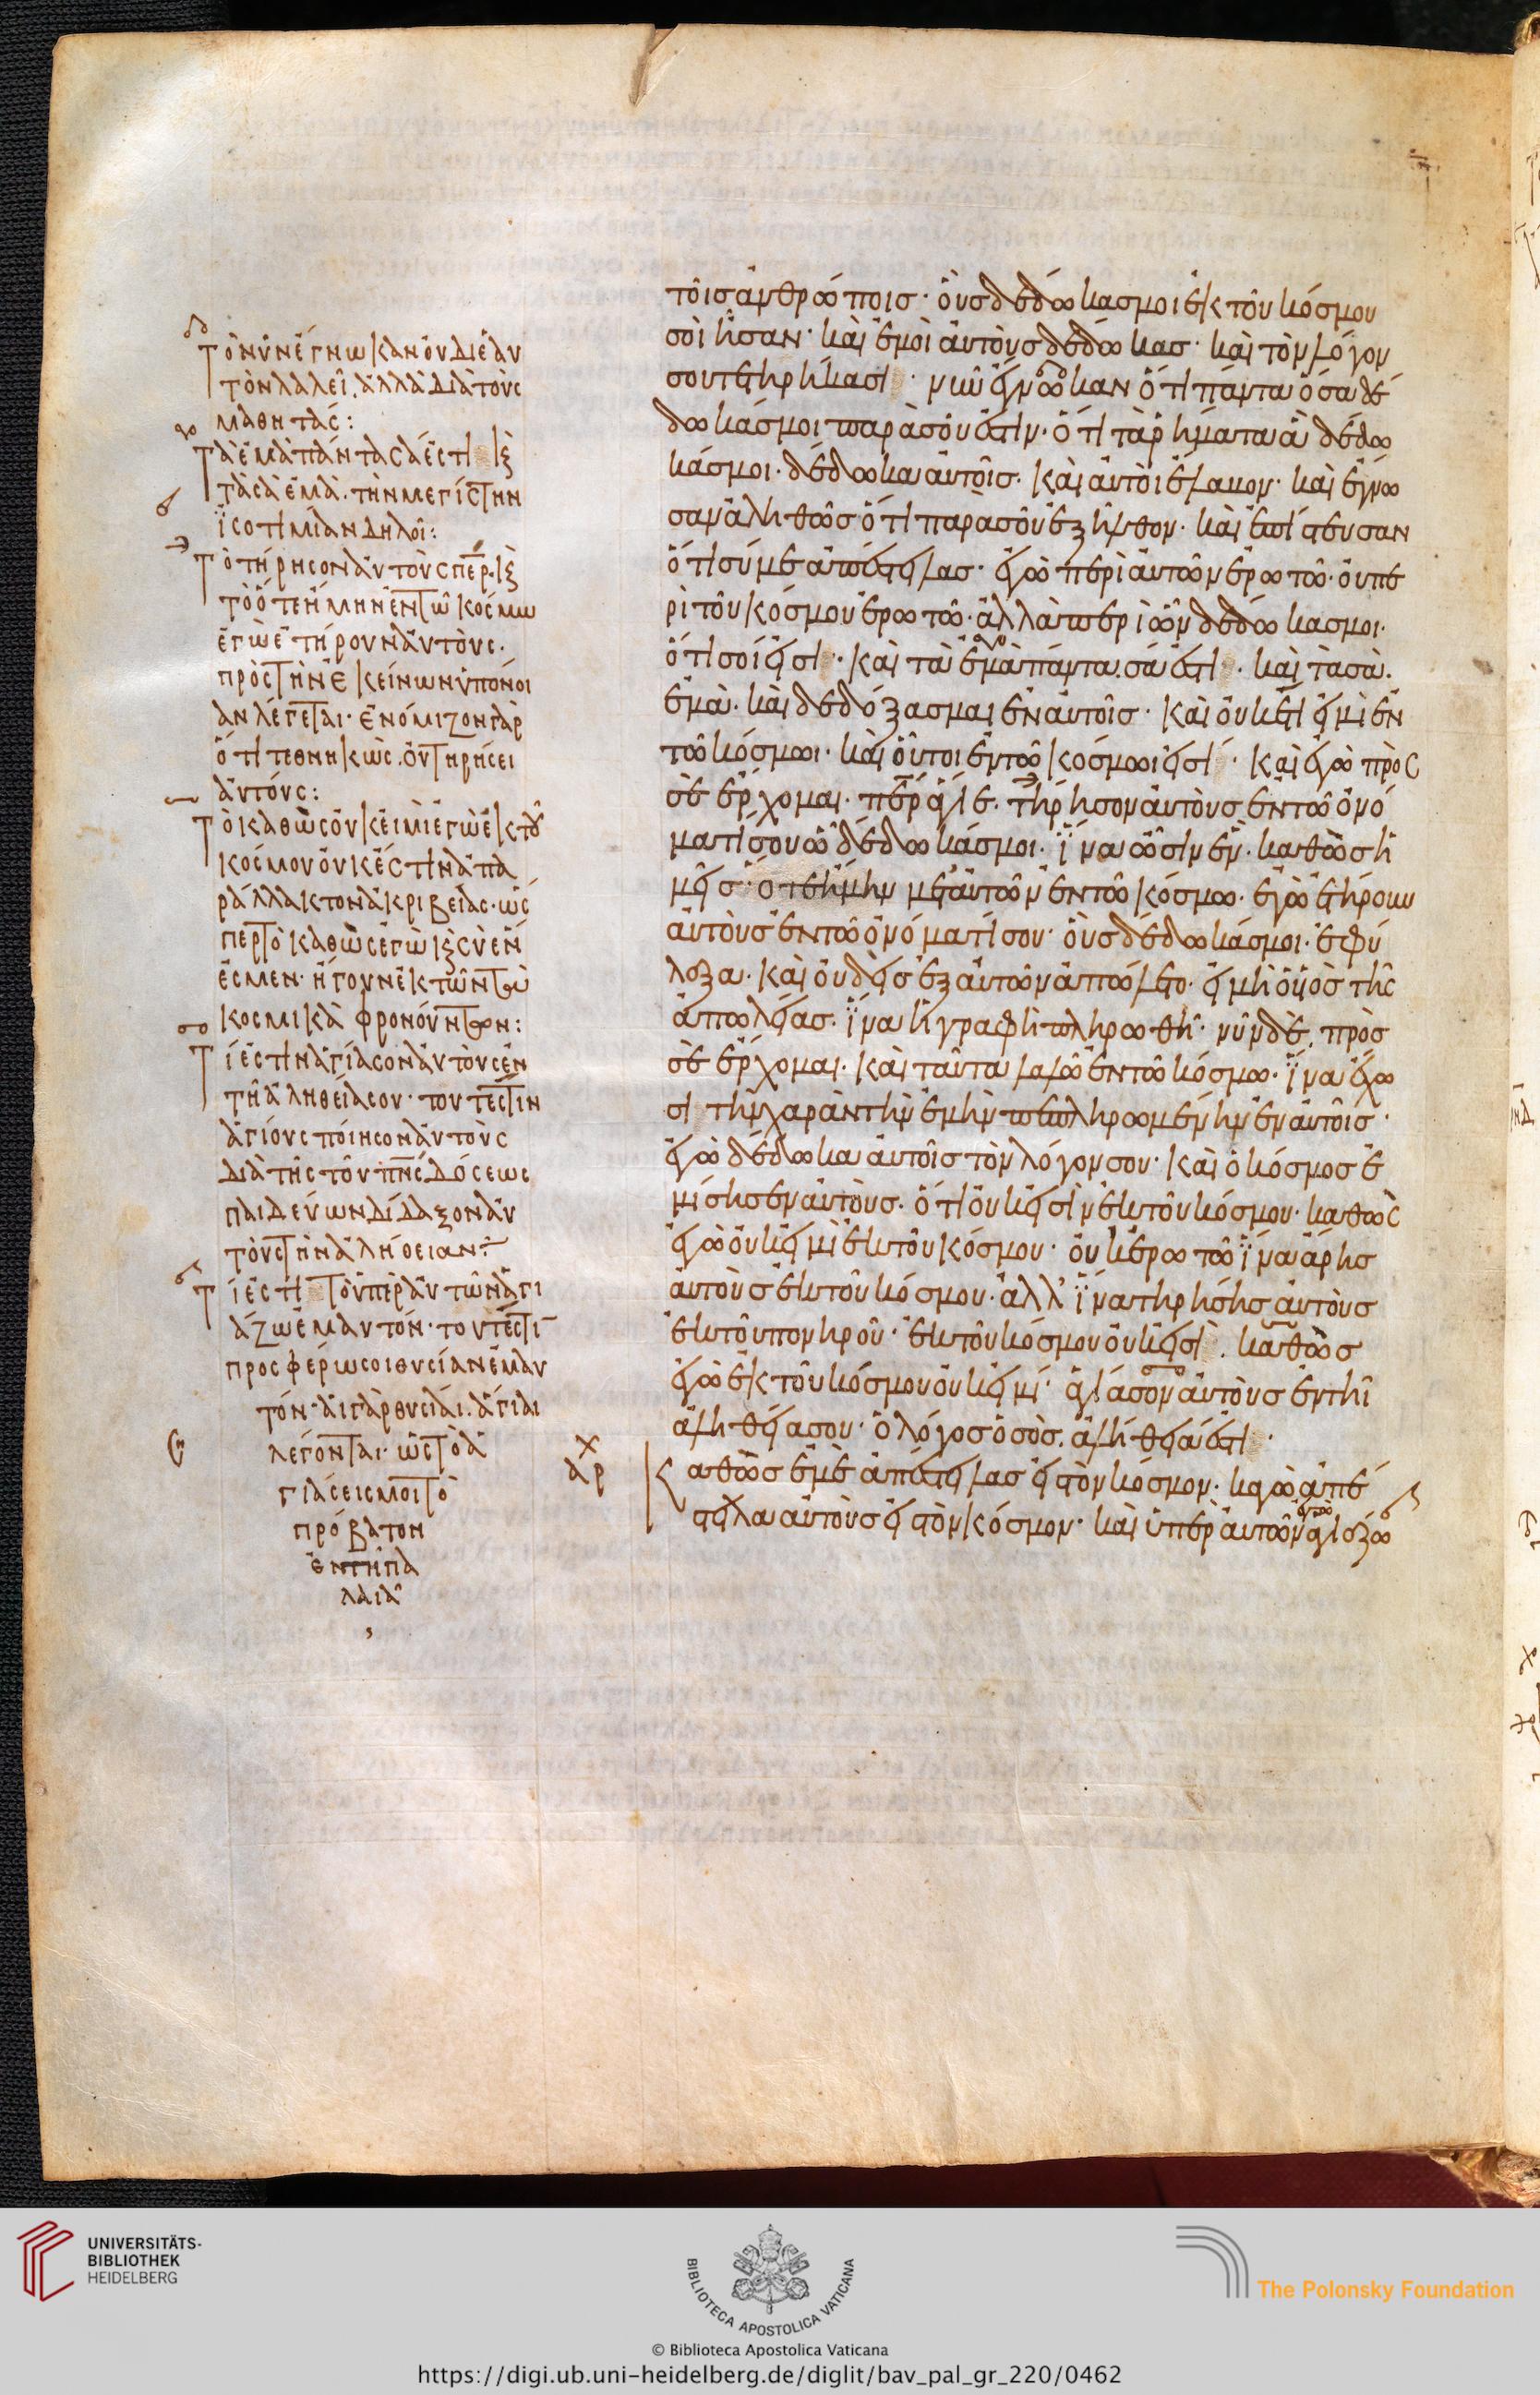 τοῖς ἀνθρώποις· οὓς δέδωκας μοι ἐκ τοῦ κόσμου
σοὶ ἦσαν· καὶ ἐμοὶ αὐτοὺς δέδωκας· καὶ τὸν λόγον
σου τετηρήκασι· νῦν ἔγνωκαν ὅτι πάντα ὅσα δέ
δωκάς μοι παρὰ σοῦ ἐστιν· ὅτι τὰ ῥήματα ἃ δέδω
κάς μοι· δέδωκα αὐτοῖς· καὶ αὐτοὶ ἔλαβον· καὶ ἔγνω
σαν ἀληθῶς ὅτι παρὰ σοῦ ἐξῆλθον· καὶ ἐπίστευσαν
ὅτι σύ με ἀπέστειλας· ἐγὼ περὶ αὐτῶν ἐρωτῶ· οὐ πε
ρὶ τοῦ κόσμου ἐρωτῶ· ἀλλὰ περὶ ὧν δέδωκας μοι·
ὅτι σοί εἰσι· καὶ τὰ ἐμὰ πάντα σά ἐστι· καὶ τὰ σὰ
ἐμά· καὶ δεδόξασμαι ἐν αὐτοῖς· καὶ οὐκέτι εἰμὶ ἐν
τῶ κόσμωι· καὶ οὗτοι ἐν τῶ κόσμωι εἰσί· καὶ ἐγὼ πρὸς
σὲ ἔρχομαι· περ ἅγιε· τήρησον αὐτοὺς ἐν τῶ ὀνό
ματί σου ὧ δέδωκάς μοι· ἵνα ὦσιν ἕν· καθὼς ἡ
μεῖς· ὅτε ἤμην μετ αὐτῶν ἐν τῶ κόσμω· ἐγὼ ἐτήρουν
αὐτοὺς ἐν τῶ ὀνόματί σου· οὓς δέδωκάς μοι· ἐφύ
λαξα· καὶ οὐδεὶς ἐξ αὐτῶν ἀπώλετο· εἰ μὴ ὁ υἱὸς τῆς
ἀπωλείας· ἵνα ἡ γραφὴ πληρωθῆ· νῦν δὲ πρὸς
σὲ ἔρχομαι· καὶ ταῦτα λαλῶ ἐν τῶ κόσμω· ἵνα ἔχω
σι τὴν χαρὰν τὴν ἐμὴν πεπληρωμένην ἐν αὐτοῖς·
ἐγὼ δέδωκα αὐτοῖς τὸν λόγον σου· καὶ ὁ κόσμος ἐ
μίσησεν αὐτούς· ὅτι οὐκ εἰσὶν ἐκ τοῦ κόσμου· καθὼς
ἐγὼ οὐκ εἰμὶ ἐκ τοῦ κόσμου· οὐκ ἐρωτῶ ἵνα ἄρης
αὐτοὺς ἐκ τοῦ κόσμου· ἀλλ' ἵνα τηρήσης αὐτοὺς
ἐκ τοῦ πονηροῦ· ἐκ τοῦ κόσμου οὐκ εἰσὶ· καθὼς
ἐγὼ ἐκ τοῦ κόσμου οὐκ εἰμί· ἁγίασον αὐτοὺς ἐν τῆ
ἀληθεία σου· ὁ λόγος ὁ σὸς ἀλήθειά ἐστι·
Καθὼς ἐμὲ ἀπέστειλας εἰς τὸν κόσμον· κἀγὼ ἀπέ
στειλα αὐτοὺς εἰς τὸν κόσμον· καὶ ὑπὲρ αὐτῶν ἐγὼ ἁγιάζω
Τὸ νῦν ἔγνωκαν οὐ δι ἑαυ
τὸν λαλεῖ, ἀλλὰ διὰ τοὺς
μαθητάς:
Τὰ ἐμὰ πάντα σά ἐστι κ
τὰ σὰ ἐμά. τὴν μεγίστην
ἰσοτιμίαν δηλοῖ:
Τὸ τήρησον αὐτοὺς περ· κ
τὸ ὅτε ἤμην ἐν τῶ κόσμω
ἐγὼ ἐτήρουν αὐτούς·
πρὸς τὴν ἐκείνων ὑπόνοι
αν λέγεται· ἐνόμιζον γὰρ
ὅτι τεθνηκὼς οὐ τηρήσει
αὐτούς:
Τὸ καθὼς οὐκ εἰμὶ ἐγὼ ἐκ του
κόσμου οὐκ ἔστιν ἀπα
ράλλακτον ἀκριβείας· ὥς
περ τὸ καθὼς ἐγὼ κ σὺ ἕν
ἐσμεν· ἤγουν ἐκ τῶν τὰ
κοσμικὰ φρονούντων:
Τί ἐστιν ἁγίασον αὐτοὺς ἐν
τῆ ἀληθεία σου· τουτέστιν
ἁγίους ποίησον αὐτοὺς
διὰ τῆς τοῦ πνς δόσεως
παιδεύων δίδαξον αὐ
τοὺς τὴν ἀλήθειαν:
Τί ἐστι τὸ ὑπὲρ αὐτῶν ἁγι
άζω ἐμαυτόν· τουτέστι
προσφέρω σοι θυσίαν ἐμαυ
τόν· αἱ γὰρ θυσίαι ἅγιαι
λέγονται· ὡς τὸ ἁ
γιάσεις μοι τὸ
πρόβατον
ἐν τῆ πα
λαιᾶ
χ
αρ
UNIVERSITÄTS-
BIBLIOTHEK
HEIDELBERG
BIBLIOTECA APOSTOLICA VATICANA
The Polonsky Foundation
© Biblioteca Apostolica Vaticana
https://digi.ub.uni-heidelberg.de/diglit/bav_pal_gr_220/0462